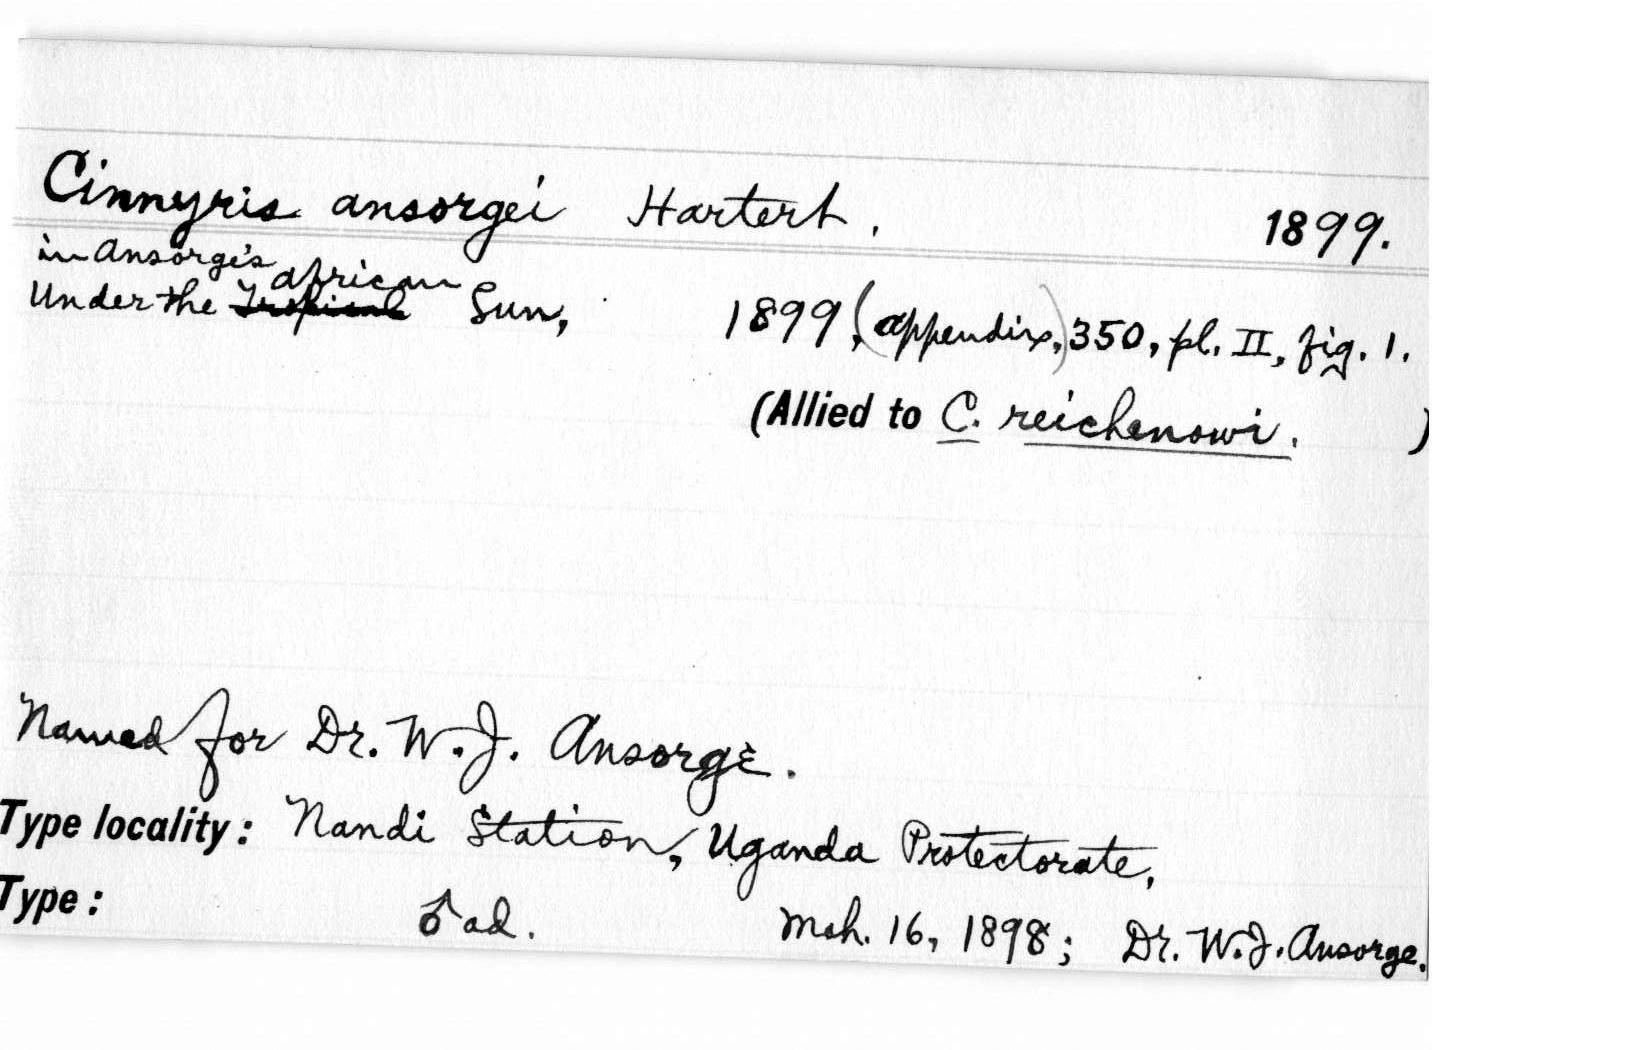 Cinnyris ansorgei Hartert. 1899.
in Ansorge's african
Under the Tropical Sun, 1899, (appendix,) 350, pl. II, fig. 1.
(Allied to C. reichenowi. )
Named for Dr. W. J. Ansorge.
Type locality: Nandi Station, Uganda Protectorate,
Type: ♂ ad. Mch. 16, 1898; Dr. W. J. Ansorge.